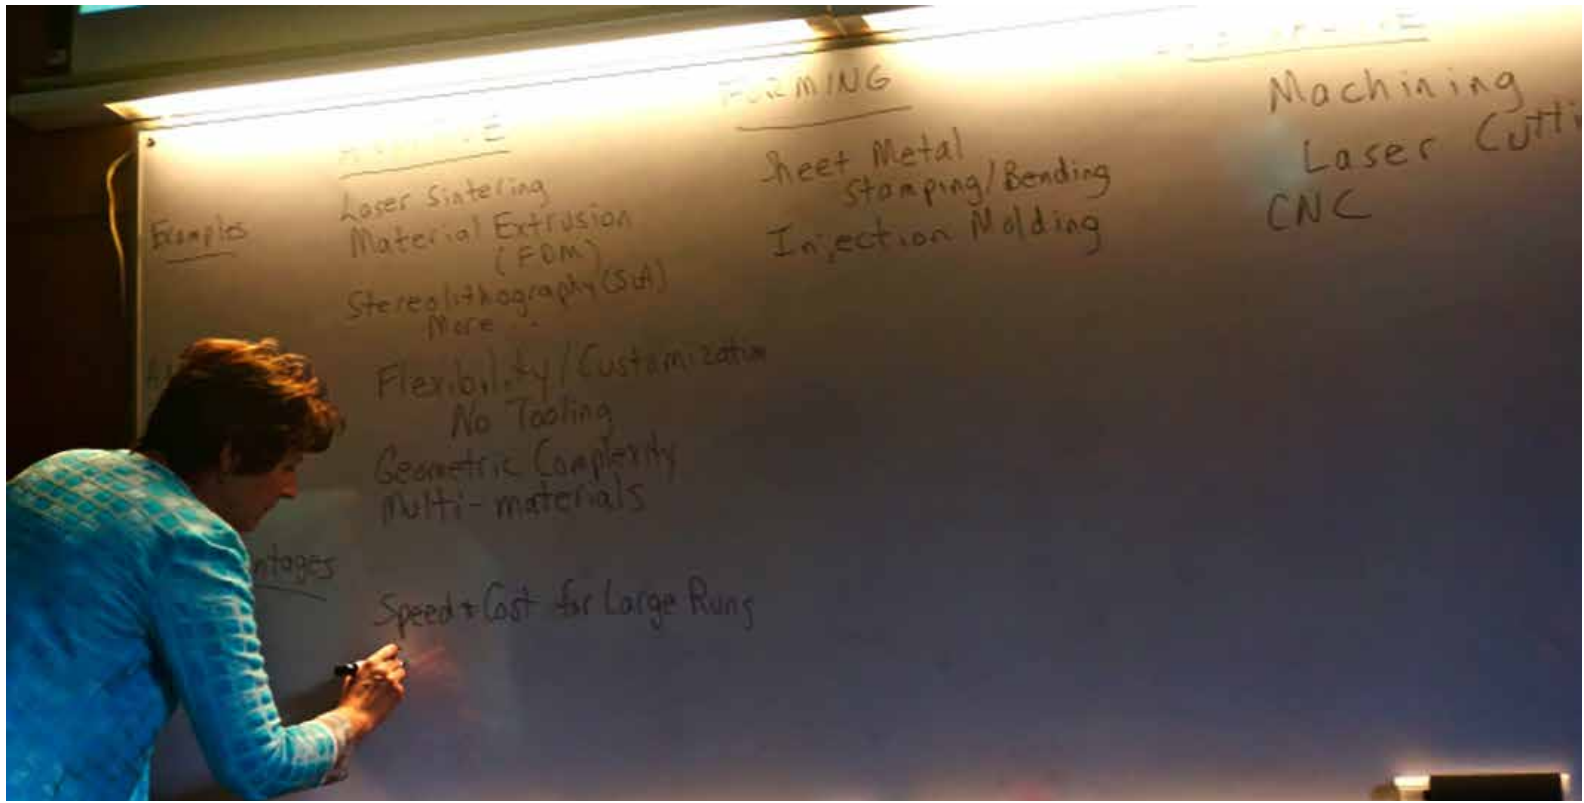 FORMING
Examples
Laser Sintering
Material Extrusion
(FDM)
Stereolithography (SLA)
More ..
Sheet Metal
Stamping/Bending
Injection Molding
Machining
Laser
CNC
Flexibility/Customization
No Tooling
Geometric Complexity
Multi-materials
ntages
Speed + Cost for Large Runs